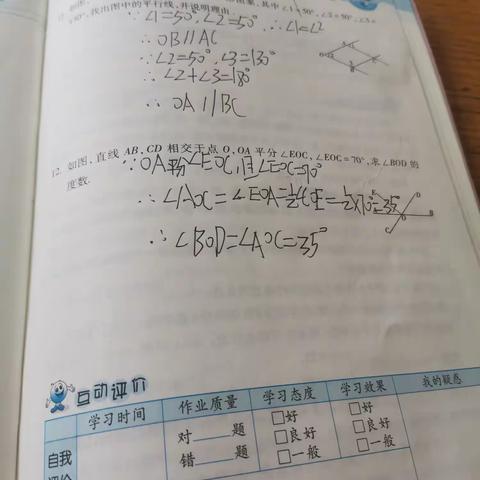 图案,其中∠1=50°,∠2=50°,∠3=
130°,找出图中的平行线,并说明理由.
∵∠1=50°,∠2=50° ∴∠1=∠2
∴OB∥AC
∵∠2=50°,∠3=130°
∴∠2+∠3=180°
∴OA∥BC
12. 如图,直线 AB,CD 相交于点 O,OA 平分∠EOC,∠EOC=70°,求∠BOD 的
度数.
∵OA平分∠EOC,且∠EOC=70°
∴∠AOC=∠EOA=½∠COE=½×70°=35°
∴∠BOD=∠AOC=35°
互动评价
学习时间 作业质量 学习态度 学习效果 我的疑惑
自我
评价
对____题 □好 □好
□良好 □良好
错____题 □一般 □一般